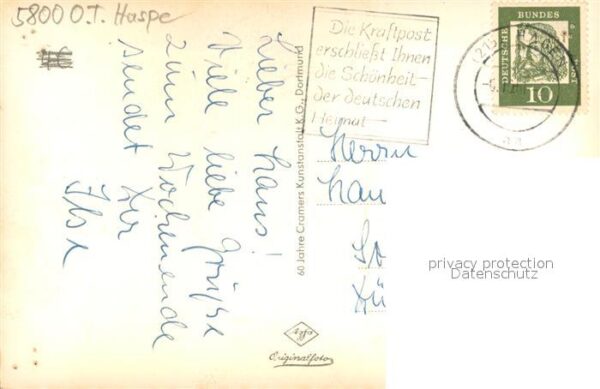 5800 O.T. Haspe
Lieber Hans!
Viele liebe Grüße
zum Wochenende
sendet Dir
Ilse
60 Jahre Cramers Kunstanstalt K.G., Dortmund
Die Kraftpost
erschließt Ihnen
die Schönheit
der deutschen
Heimat
DEUTSCHE
BUNDES
10
Herrn
privacy protection
Datenschutz
Agfa
Originalfoto